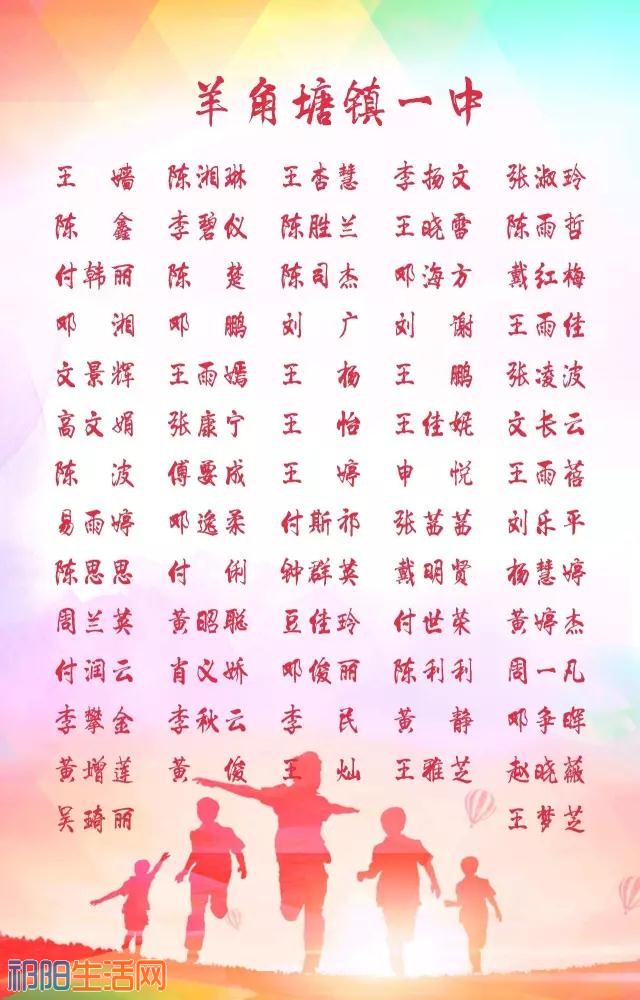 羊角塘镇一中
王嫱 陈湘琳 王杏慧 李扬文 张淑玲
陈鑫 李碧仪 陈胜兰 王晓雷 陈雨哲
付韩丽 陈楚 陈司杰 邓海方 戴红梅
邓湘 邓鹏 刘广 刘谢 王雨佳
文景辉 王雨嫣 王杨 王鹏 张凌波
高文娟 张康宁 王怡 王佳妮 文长云
陈波 傅要成 王婷 申悦 王雨蓓
易雨婷 邓逸柔 付斯祁 张茜茜 刘乐平
陈思思 付俐 钟群英 戴明贤 杨慧婷
周兰英 黄昭聪 豆佳玲 付世荣 黄婷杰
付润云 肖义娇 邓俊丽 陈利利 周一凡
李攀金 李秋云 李民 黄静 邓争晖
黄增莲 黄俊 王灿 王雅芝 赵晓薇
吴琦丽 王梦芝
祁阳生活网